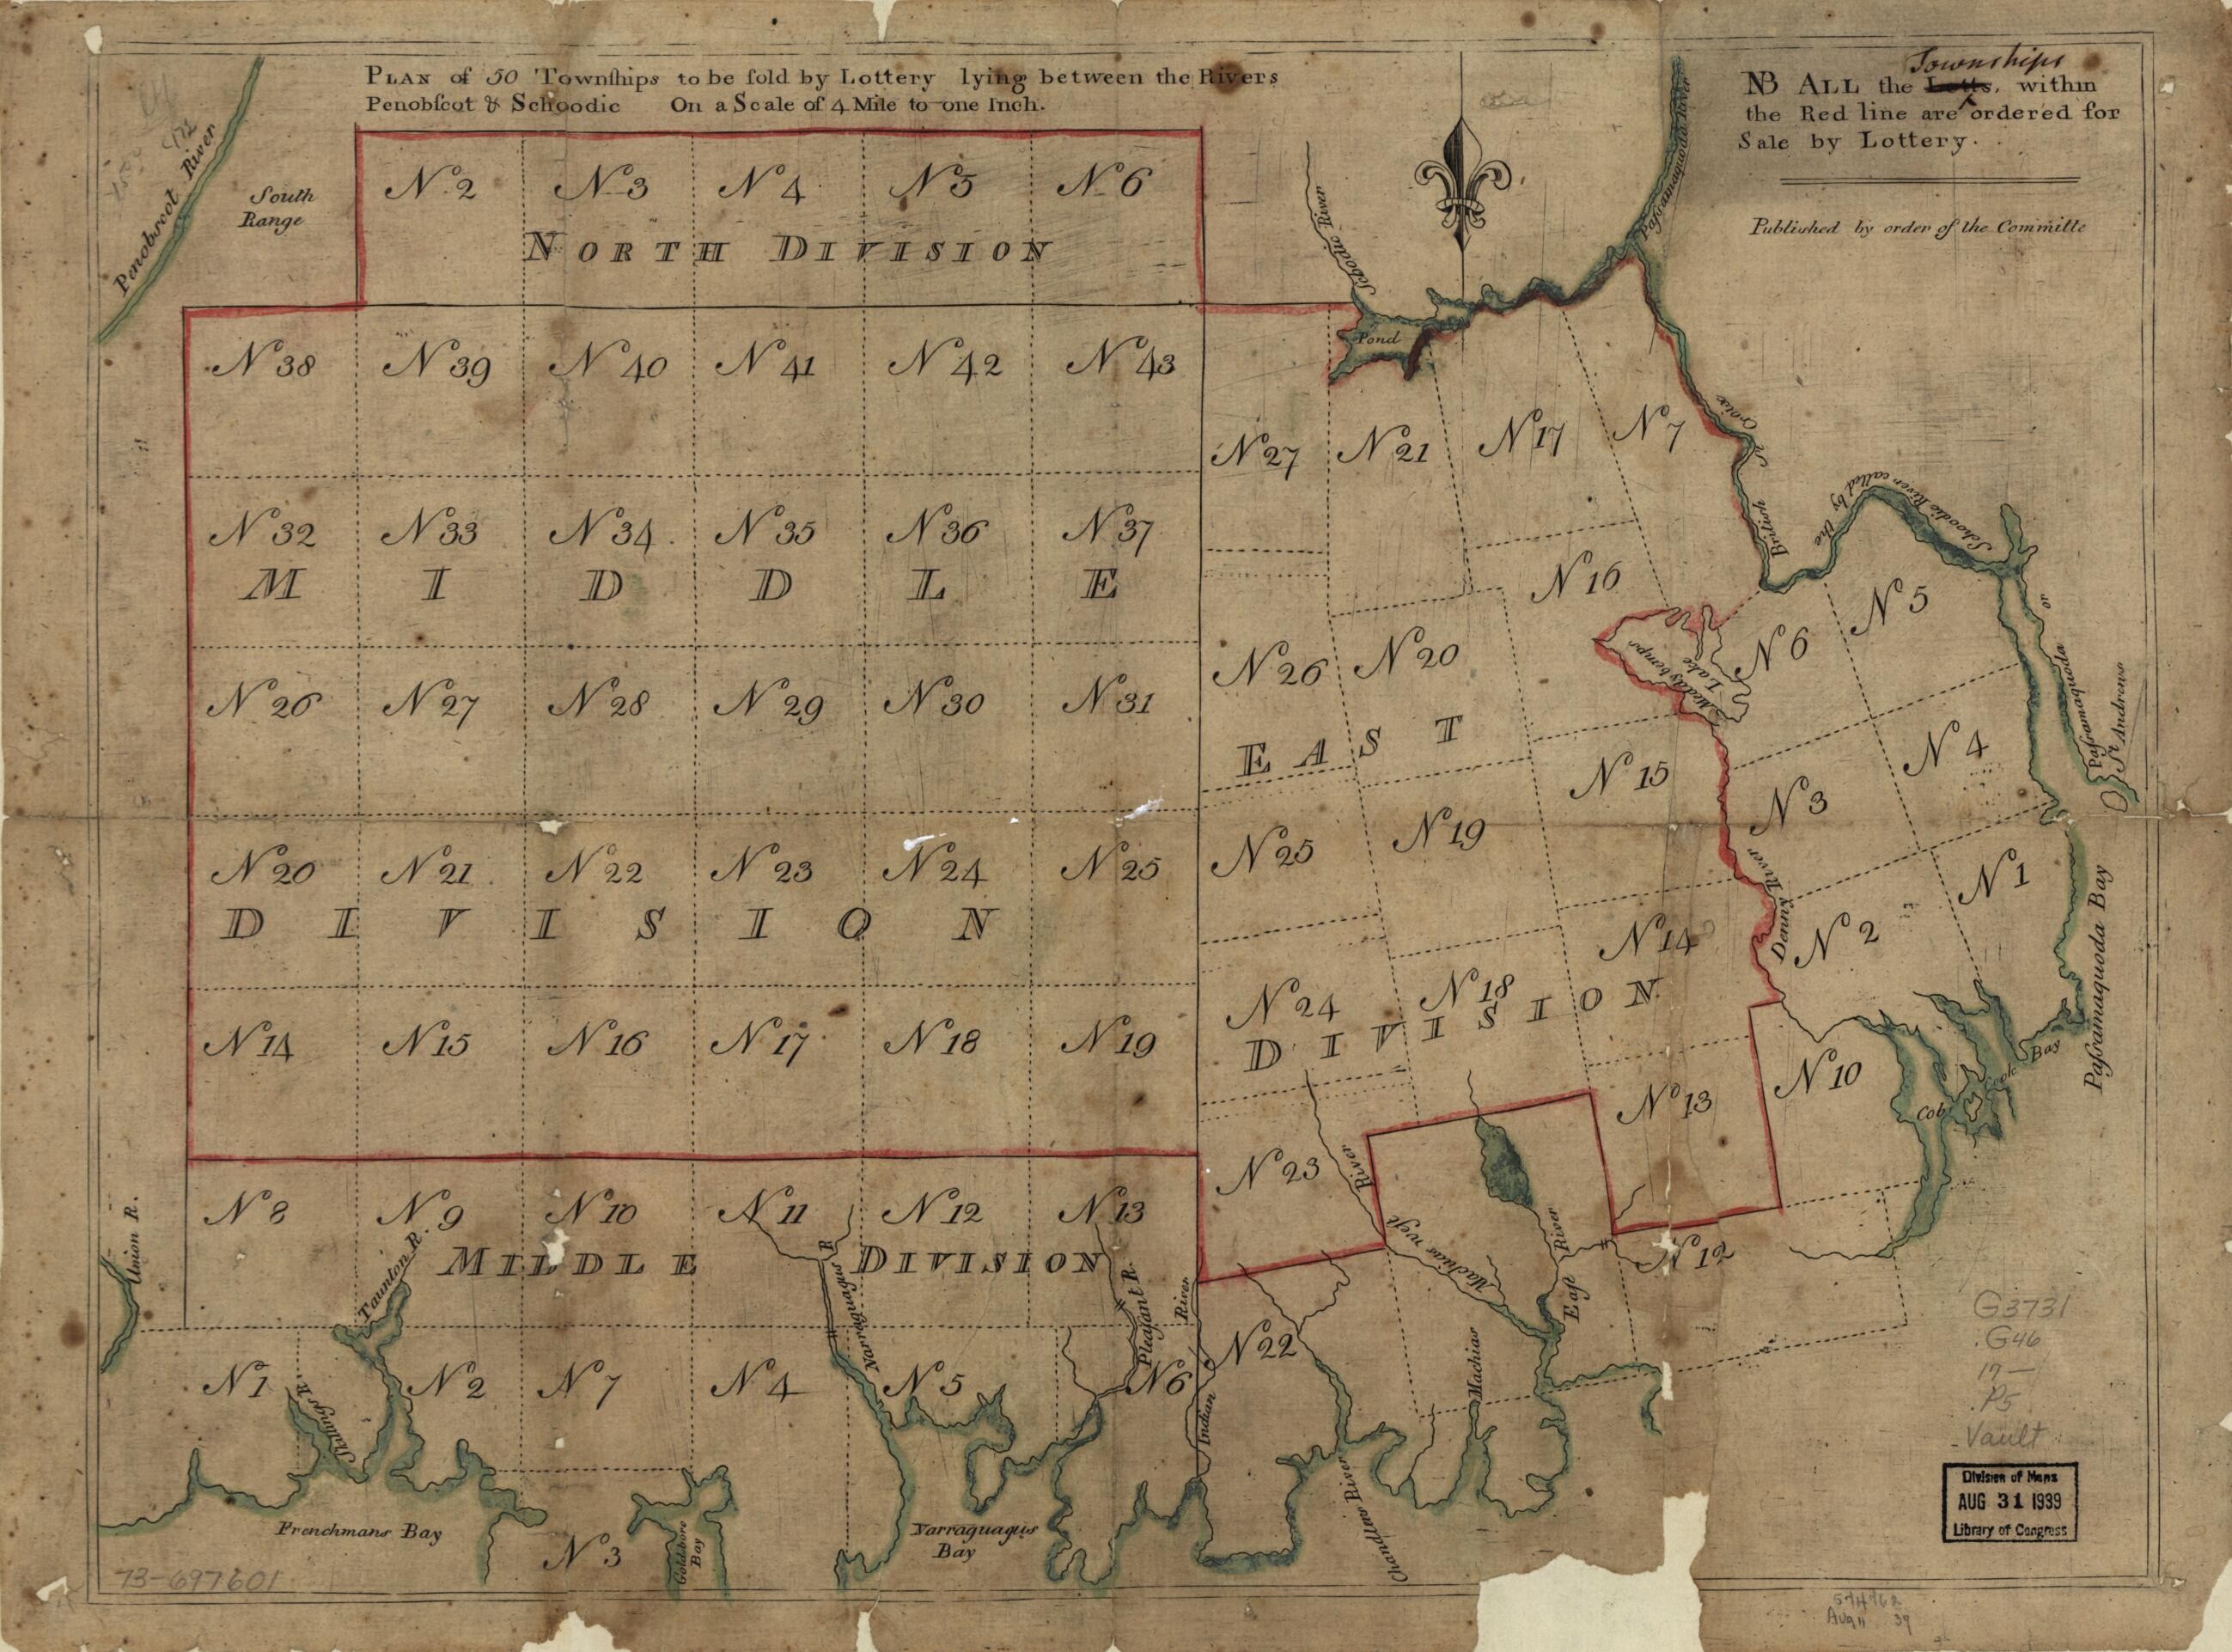 PLAN of 50 Townſhips to be ſold by Lottery lying between the Rivers
Penobſcot & Schoodic On a Scale of 4 Mile to one Inch.
Townships
NB ALL the Lotts, within
the Red line are ordered for
Sale by Lottery.
Published by order of the Committe
Penobscot River
South
Range
Nº 2 Nº 3 Nº 4 Nº 5 Nº 6
NORTH DIVISION
Scbodic River
Paſsamaquoda River
Pond
Nº 38 Nº 39 Nº 40 Nº 41 Nº 42 Nº 43
Nº 27 Nº 21 Nº 17 Nº 7
Schoodic River called by the British St Croix
or Paſsamaquoda
St Andrews
Nº 32 Nº 33 Nº 34 Nº 35 Nº 36 Nº 37
MIDDLE
Nº 16 Nº 5
Nº 6
Meddybemps
Lake
Nº 26 Nº 27 Nº 28 Nº 29 Nº 30 Nº 31
Nº 26 Nº 20
EAST
Nº 15 Nº 3 Nº 4
Nº 20 Nº 21 Nº 22 Nº 23 Nº 24 Nº 25
Nº 25 Nº 19
Nº 1
Denny River
DIVISION
Nº 14 Nº 2
Paſsamaquoda Bay
Nº 14 Nº 15 Nº 16 Nº 17 Nº 18 Nº 19
Nº 24 Nº 18
DIVISION
Nº 13 Nº 10
Cobs Cook Bay
Nº 8 Nº 9 Nº 10 Nº 11 Nº 12 Nº 13
Nº 23
Machias West River
East River
Nº 12
MIDDLE DIVISION
Union R.
Taunton R.
Narraguagus R
Pleaſant R.
Indian River
Nº 1 Nº 2 Nº 7 Nº 4 Nº 5 Nº 6 Nº 22
Machias
Chandlers River
Frenchmans Bay
Nº 3
Goldsboro
Bay
Narraguagus
Bay
G3731
.G46
17—
.P5
Vault
Division of Maps
AUG 31 1939
Library of Congress
73-697601